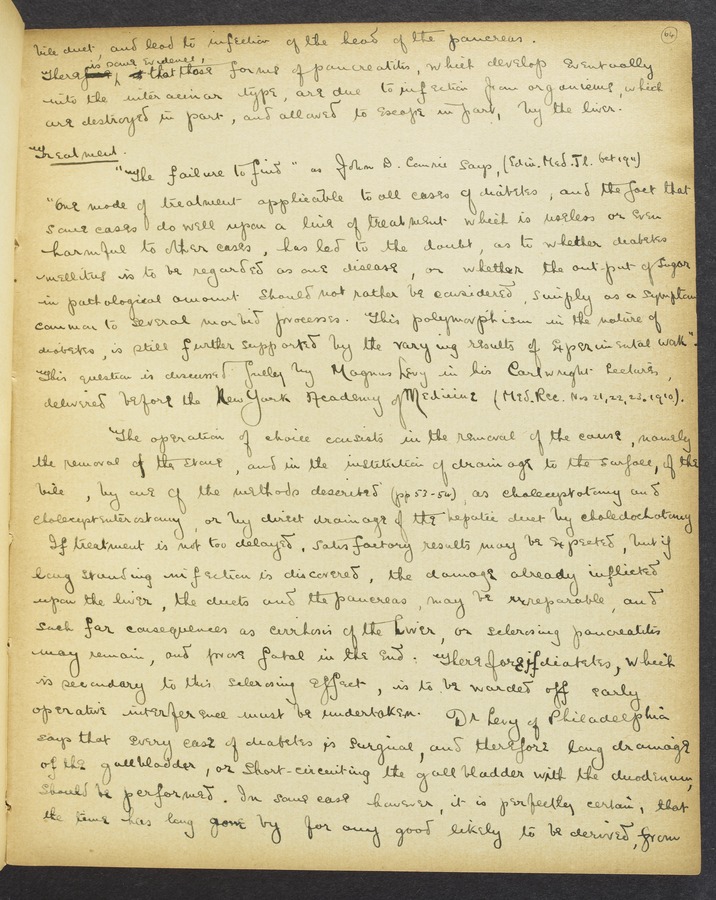 66
bile duct, and lead to infection of the head of the pancreas.
is some evidence,
There that those forms of pancreatitis, which develop eventually
into the inter acinar type, are due to infection from organisms, which
are destroyed in part, and allowed to escape in part, by the liver.
Treatment.
"The failure to find" as John D. Comrie says, (Edin. Med. Jl. Oct 1911)
"one mode of treatment applicable to all cases of diabetes, and the fact that
some cases do well upon a line of treatment which is useless or even
harmful to other cases, has led to the doubt, as to whether diabetes
mellitus is to be regarded as one disease, or whether the out-put of sugar
in pathological amount should not rather be considered, simply as a symptom
common to several morbid processes. This polymorphism in the nature of
diabetes, is still further supported by the varying results of experimental work".
This question is discussed fully by Magnus Levy in his Cartwright Lectures,
delivered before the New York Academy of Medicine (Med. Rec. Nos 21, 22, 23. 1910).
The operation of choice consists in the removal of the cause, namely
the removal of the stone, and in the institution of drainage to the surface, of the
bile, by one of the methods described (pp 53-54) as cholecystotomy and
cholecystenterostomy, or by direct drainage of the hepatic duct by choledochotomy
If treatment is not too delayed, satisfactory results may be expected, but if
long standing infection is discovered, the damage already inflicted
upon the liver, the ducts and the pancreas, may be irreparable, and
such far consequences as cirrhosis of the liver, or sclerosing pancreatitis
may remain, and prove fatal in the end. Therefore if diabetes, which
is secondary to this sclerosing effect, is to be warded off early
operative interference must be undertaken. Dr Levy of Philadelphia
says that every case of diabetes is surgical, and therefore long drainage
of the gallbladder, or short-circuiting the gall bladder with the duodenum,
should be performed. In some case however, it is perfectly certain, that
the time has long gone by for any good likely to be derived, from